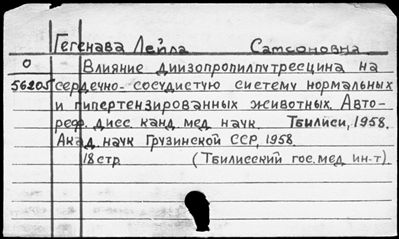 Гегенава Лейла Самсоновна
О Влияние диизопропилпутресцина на
56205 сердечно-сосудистую систему нормальных
и гипертензированных животных. Авто-
реф. дисс. канд. мед. наук. Тбилиси, 1958.
Акад. наук Грузинской ССР, 1958.
18 стр. (Тбилисский гос. мед. ин-т)